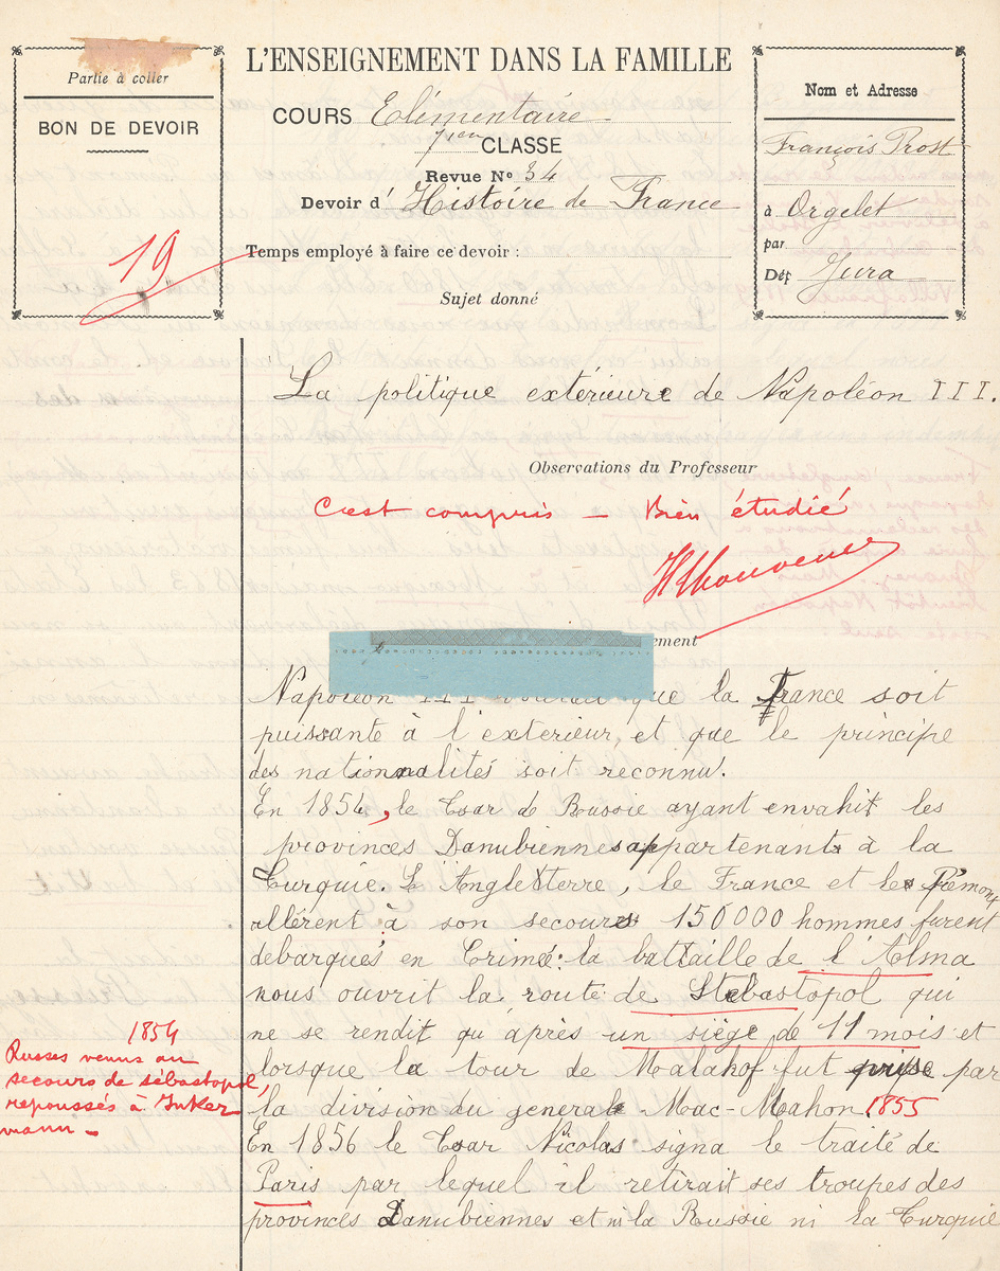 Partie à coller
BON DE DEVOIR
19
L'ENSEIGNEMENT DANS LA FAMILLE
COURS Elémentaire
7ième CLASSE
Revue Nº 34
Devoir d' Histoire de France
Temps employé à faire ce devoir :
Sujet donné
Nom et Adresse
François Prost
à Orgelet
par
Dép Jura
La politique extérieure de Napoléon III.
Observations du Professeur
C'est compris – Bien étudié
HThouvenel
ement
Napoléon III que la France soit
puissante à l'exterieur, et que le principe
des nationnalités soit reconnu.
En 1854, le Tsar de Russie ayant envahit les
provinces Danubiennes appartenant à la
Turquie. L'Angleterre, le France et le Piémont
allérent à son secours 150000 hommes furent
debarqués en Crimée: la battaille de l'Alma
nous ouvrit la route de Sebastopol qui
ne se rendit qu'après un siège de 11 mois et
lorsque la tour de Malakof fut prise par
la division du general Mac-Mahon 1855
En 1856 le Tsar Nicolas signa le traité de
Paris par lequel il retirait ses troupes des
provinces Danubiennes et ni la Russie ni la Turquie
1854
Russes venus au
secours de sébastopol,
repoussés à Inker
mann –